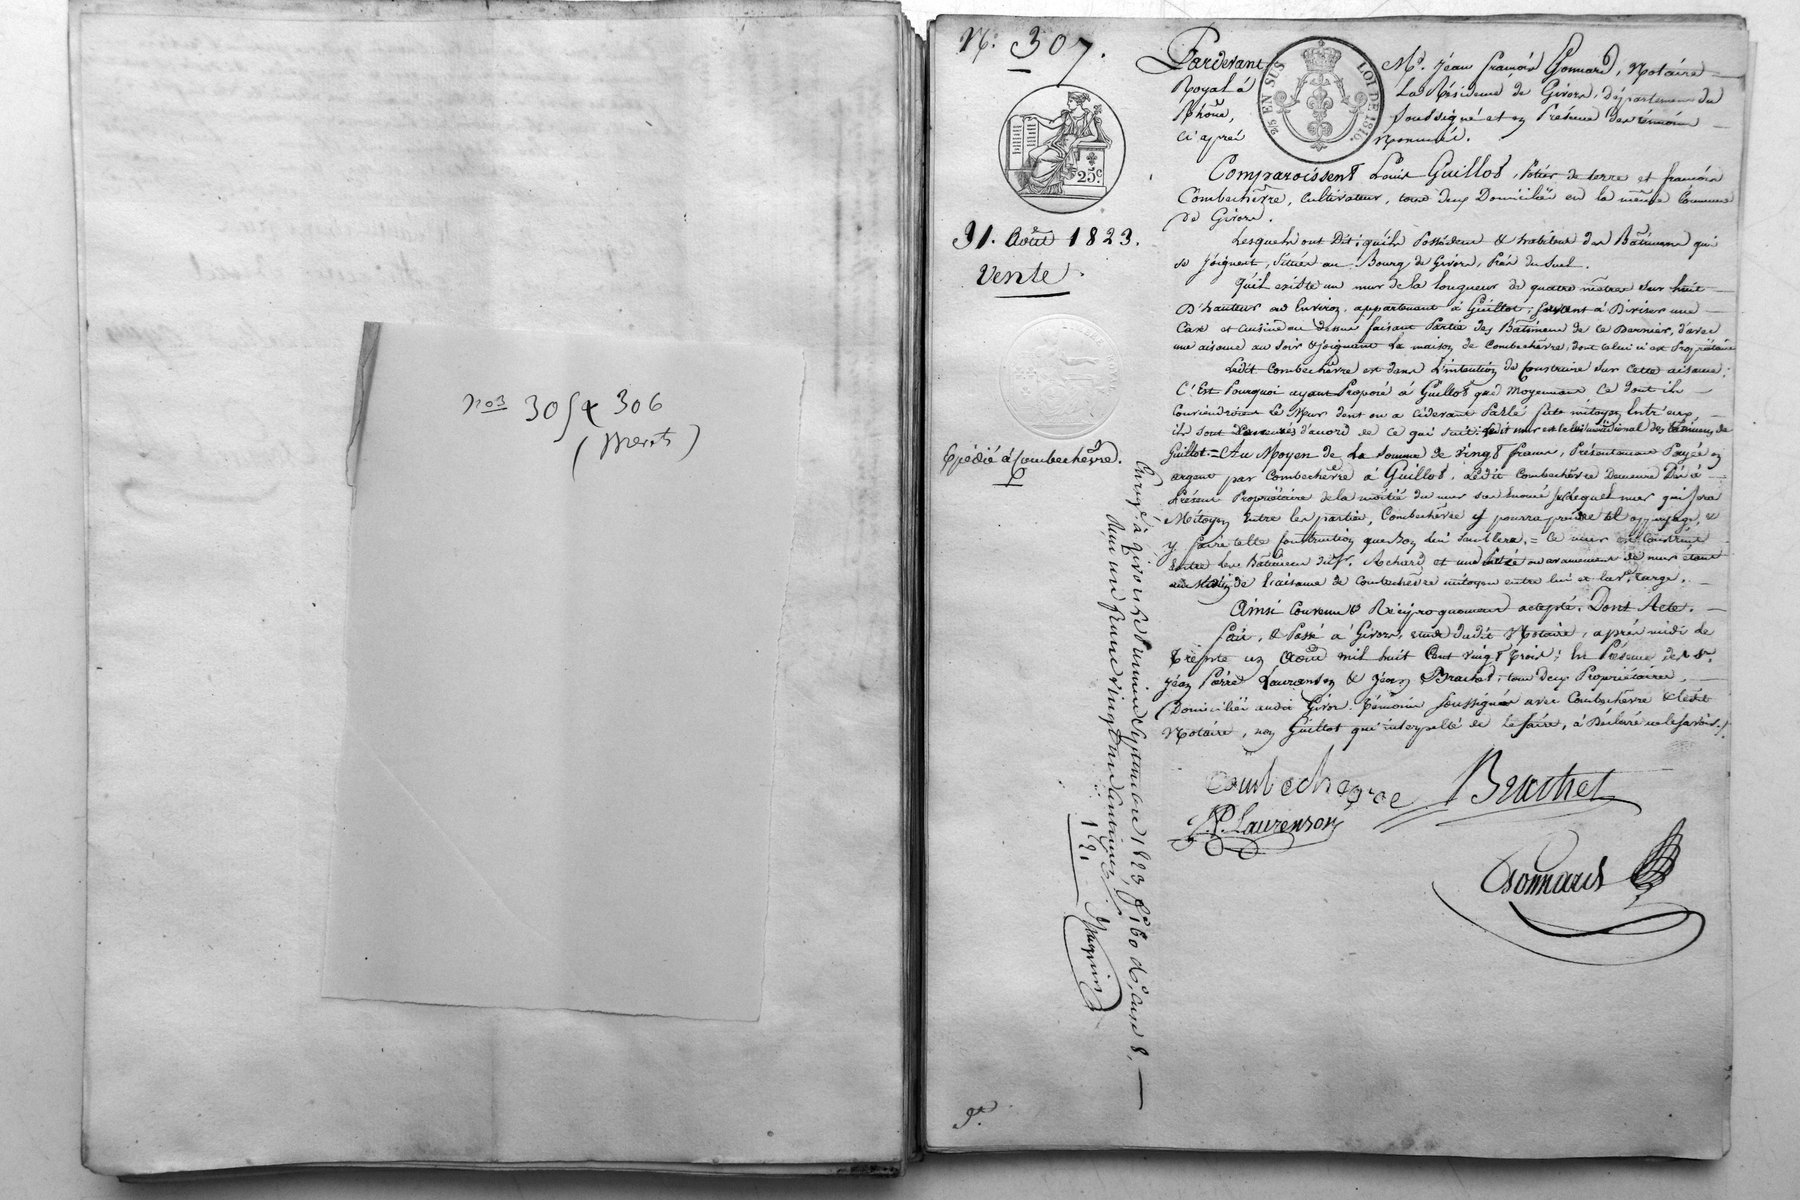 nos 305 & 306
N.° 307.
25 EN SUS
LOI DE 1816
25 c.
31. Août 1823.
Vente
Expédié à Combechèvre.
Pardevant M.e Jean françois Gonnard, Notaire
Royal à La Résidence de Givors, Département du
Rhône, soussigné et en Présence des témoins
ci après Nommés.
Comparoissent Louis Guillot, Potier de terre et françois
Combechèvre, cultivateur, tous deux Domiciliés en la même Commune
de Givors.
Lesquels ont Dit; qu'ils Possèdent & habitent des Bâtimens qui
se joignent, situés au Bourg de Givors, Près du Suel.
Qu'il existe un mur de la longueur de quatre mètres sur huit
D'hauteur ou Environ, appartenant à Guillot, servant à Diviser une
Cave et cuisine au dessus faisant Partie des Bâtimens de ce Dernier, d'avec
une aisance au soir & joignant La maison de Combechèvre, dont celui ci est Propriétaire
Ledit Combechèvre est dans L'intention de Construire sur cette aisance;
C'Est Pourquoi ayant Proposé à Guillot que Moyennant Ce dont ils
Conviendroient Le Mur dont on a cidevant Parlé fut mitoyen Entr'eux,
ils sont Demeurés d'acord de ce qui suit. Ledit mur est le méridional des Bâtimens de
Guillot. = Au Moyen de La Somme de vingt francs, Présentement Payée en
argent par Combechèvre à Guillot, Ledit Combechèvre Demeure Dès à
Présent Propriétaire de la moitié du mur sus Enoncé, Lequel mur qui sera
Mitoyen Entre les parties, Combechèvre y pourra prendre tel appuyage, &
y faire telle Construction que bon lui semblera, = ce mur est construit
Entre les Bâtimens du S.r Achard et une
de L'aisance de Combechèvre mitoyen entre lui et la v.e Targe.
Ainsi Convenu & Réciproquement accepté. Dont Acte.
Fait, & Passé à Givors, étude dudit Notaire, après midi de
Trente un Août mil huit Cent vingt Trois; En Présence des S.rs
Jean Pierre Laurenson & Jean Brachet, tous deux Propriétaires,
Domiciliés audit Givors. Témoins soussignés avec Combechèvre & ledit
Notaire, non Guillot qui interpellé de le faire, à Déclaré ne le savoir.
Combechevre Brachet
J.P. Laurenson
Gonnard
Enregé à Givors le Premier Septembre 1823, f.o 160 v.o, case 8,
Reçu un franc vingt un Centimes
1 21